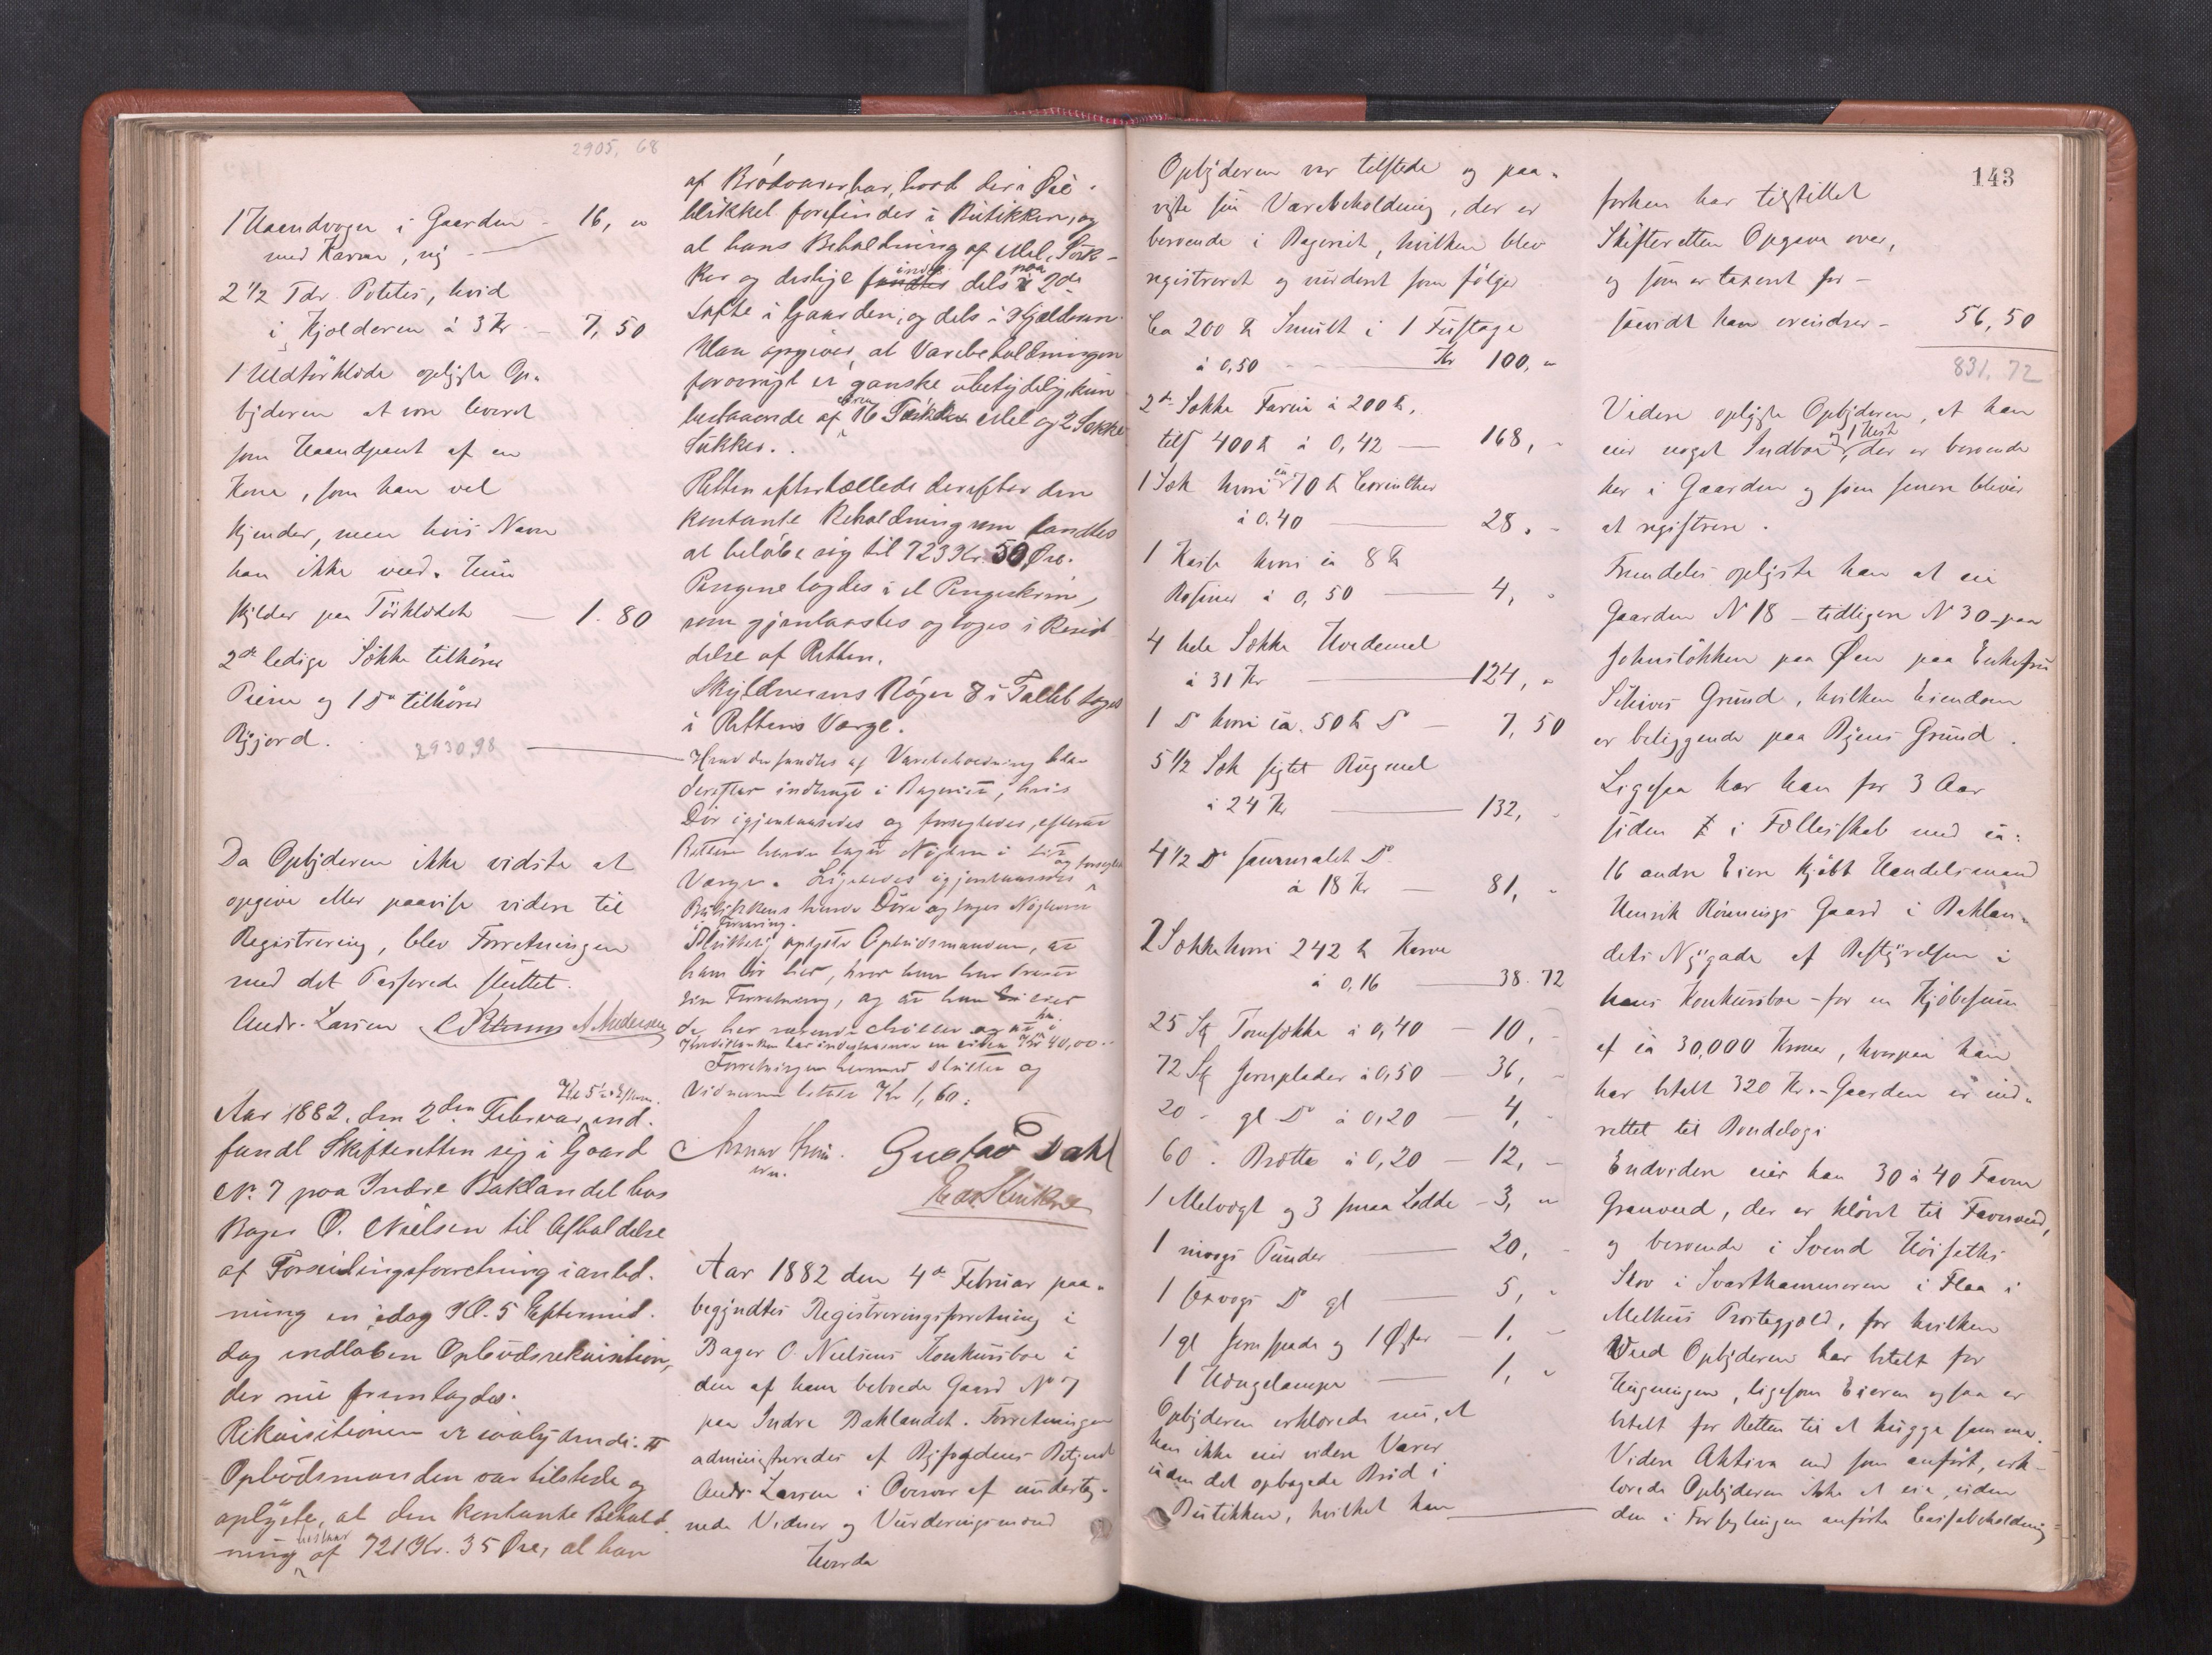 2905, 68
1 Haandvogn i Gaarden - 16, "
med Karme, ny -
2 1/2 Tdr. Potetes, hvid
i Kjelderen á 3 Kr - 7, 50
1 Uldtörklæde oplyste Op-
byderen at være leveret
som Haandpant af en
Kone, som han vel
kjender, men hvis Navn
han ikke veed. Hun
skylder paa Törklædet - 1. 80
2de ledige Sække tilhörer
og 1 Do tilhörer
2930,98
Da Opbyderen ikke vidste at
opgive eller paavise videre til
Registrering, blev Forretningen
med det Passerede sluttet.
Andr. Larsen A. Andersen
Aar 1882, den 2den Februar, ind-
fandt Skifteretten sig i Gaard
No. 7 paa Indre Baklandet hos
Bager O. Nielsen til Afholdelse
af Forseilingsforretning i anled-
ning en idag Kl. 5 Eftermid-
dag indloben Opbudsrekvisition,
der nu fremlagdes.
Rekvisitionen er saalydende: #
Opbudsmanden var tilstede og
oplyste, at den kontante Behold-
ning bestaar af 721 Kr. 35 Øre, at han
af Brödvarer har, hvad der i Øie-
blikket forefindes i Butikken, og
at hans Beholdning af Mel, Suk-
ker og deslige findes dels paa 2de
Lofte i Gaarden, og dels i Kjælderen.
Han opgiver, at Varebeholdningen
forövrigt er ganske ubetydelig, kun
bestaaende af 16 Sækker Mel og 2 Sække
Sukker.
Retten eftertællede derefter den
kontante Beholdning som fandtes
at belöbe sig til 723 Kr. 50 Øre.
Pengene lagdes i et Pengeskrin,
som gjenlaastes og toges i Besid-
delse af Retten.
Skyldnerens Böger 8 i Tallet toges
i Rettens Værge.
Hvad der fandtes af Varebeholdning blev
derefter indbragt i Bageriet, hvis
Dör igjenlaasedes og forsegledes, efterat
Retten havde taget Nöglen i sit
Værge. Ligeledes igjenlaasedes og forsegledes
Butikkens Döre og toges Nöglerne
i Forvaring.
Sluttelig oplyste Opbudsmanden, at
han bor her, hvor han har drevet
sin Forretning, og at han eier
de her værende Möbler og at han i
Kreditbanken har indestaaende en Kr 40,00.
Forretningen hermed sluttet og
Vidnerne betalt Kr 1,60.
Gustav Dahl
Aar 1882 den 4de Februar paa-
begyndtes Registreringsforretning i
Bager O. Nielsens Konkursbo i
den af ham beboede Gaard No 7
paa Indre Baklandet. Forretningen
administreredes af Byfogdens Betjent
Andr. Larsen i Overvær af underteg-
nede Vidner og Vurderingsmænd
Hvorda
143
Opbyderen var tilstede og paa-
viste sin Varebeholdning, der er
beroende i Bageriet, hvilken blev
registreret og vurderet som fölger
Ca 200 ℔ Smult i 1 Fustage
á 0,50 - Kr 100, "
2de Sække Farin á 200 ℔,
tils 400 ℔ á 0,42 - 168, "
1 Sæk hvori ca 70 ℔ Corinther
á 0.40 - 28. "
1 Kasse hvori ca 8 ℔
Rosiner á 0,50 - 4, "
4 hele Sække Hvedemel
á 31 Kr - 124, "
1 Do hvori ca. 50 ℔ Do - 7, 50
5 1/2 Sæk sigtet Rugmel
á 24 Kr - 132, "
4 1/2 Do sammalet Do
á 18 Kr - 81, "
2 Sække hvori 242 ℔ Karve
á 0,16 - 38. 72
25 St Tomsække á 0,40 - 10, "
72 St Jernplader á 0,50 - 36, "
20 - gl Do á 0,20 - 4, "
60 - Brætte á 0,20 - 12, "
1 Melvægt og 3 smaa Lodde - 3, "
1 Punder - 20, "
1 Do gl - 5, "
1 gl Jernspade og 1 Øxe - 1, "
1 Hængelampe - 1, "
Opbyderen erklærede nu, at
han ikke eier videre Varer
uden det opbagede Bröd i
Butikken, hvilket han
forhen har tilstillet
Skifteretten Opgave over,
og som er taxeret for -
saavidt ham vedrører - 56, 50
831. 72
Videre oplyste Opbyderen, at han
eier noget Indboe og 1 Hest, der er beroende
her i Gaarden og som senere bliver
at registrere.
Fremdeles oplyste han at eie
Gaarden N 18 - tidligere N 30 - paa
paa Øen paa Enkefru
Grund, hvilken Eiendom
er beliggende paa Byens Grund.
Ligesaa har han for 3 Aar
siden i Fællesskab med ca:
16 andre Eiere kjöbt Handelsmand
Henrik Rönnings Gaard i Baklan-
dets Nygade af Bestyrelsen i
hans Konkursboe - for en Kjöbesum
af ca 30,000 Kroner, hvorpaa han
har betalt 320 Kr. - Gaarden er ind-
rettet til Bondelogi
Endvidere eier han 30 á 40 Favne
Granveed, der er klövet til Favneved,
og beroende i Svend Höiseths
Skov i Svarthammeren i Flaa i
Melhus Præstegjeld, for hvilken
Veed Opbyderen har betalt for
Hugningen, ligesom Eieren ogsaa er
betalt for Retten til at hugge samme.
Videre Aktiva end som anfört, erk-
lærede Opbyderen ikke at eie, uden
den i Forseglingen anförte Cassabeholdning